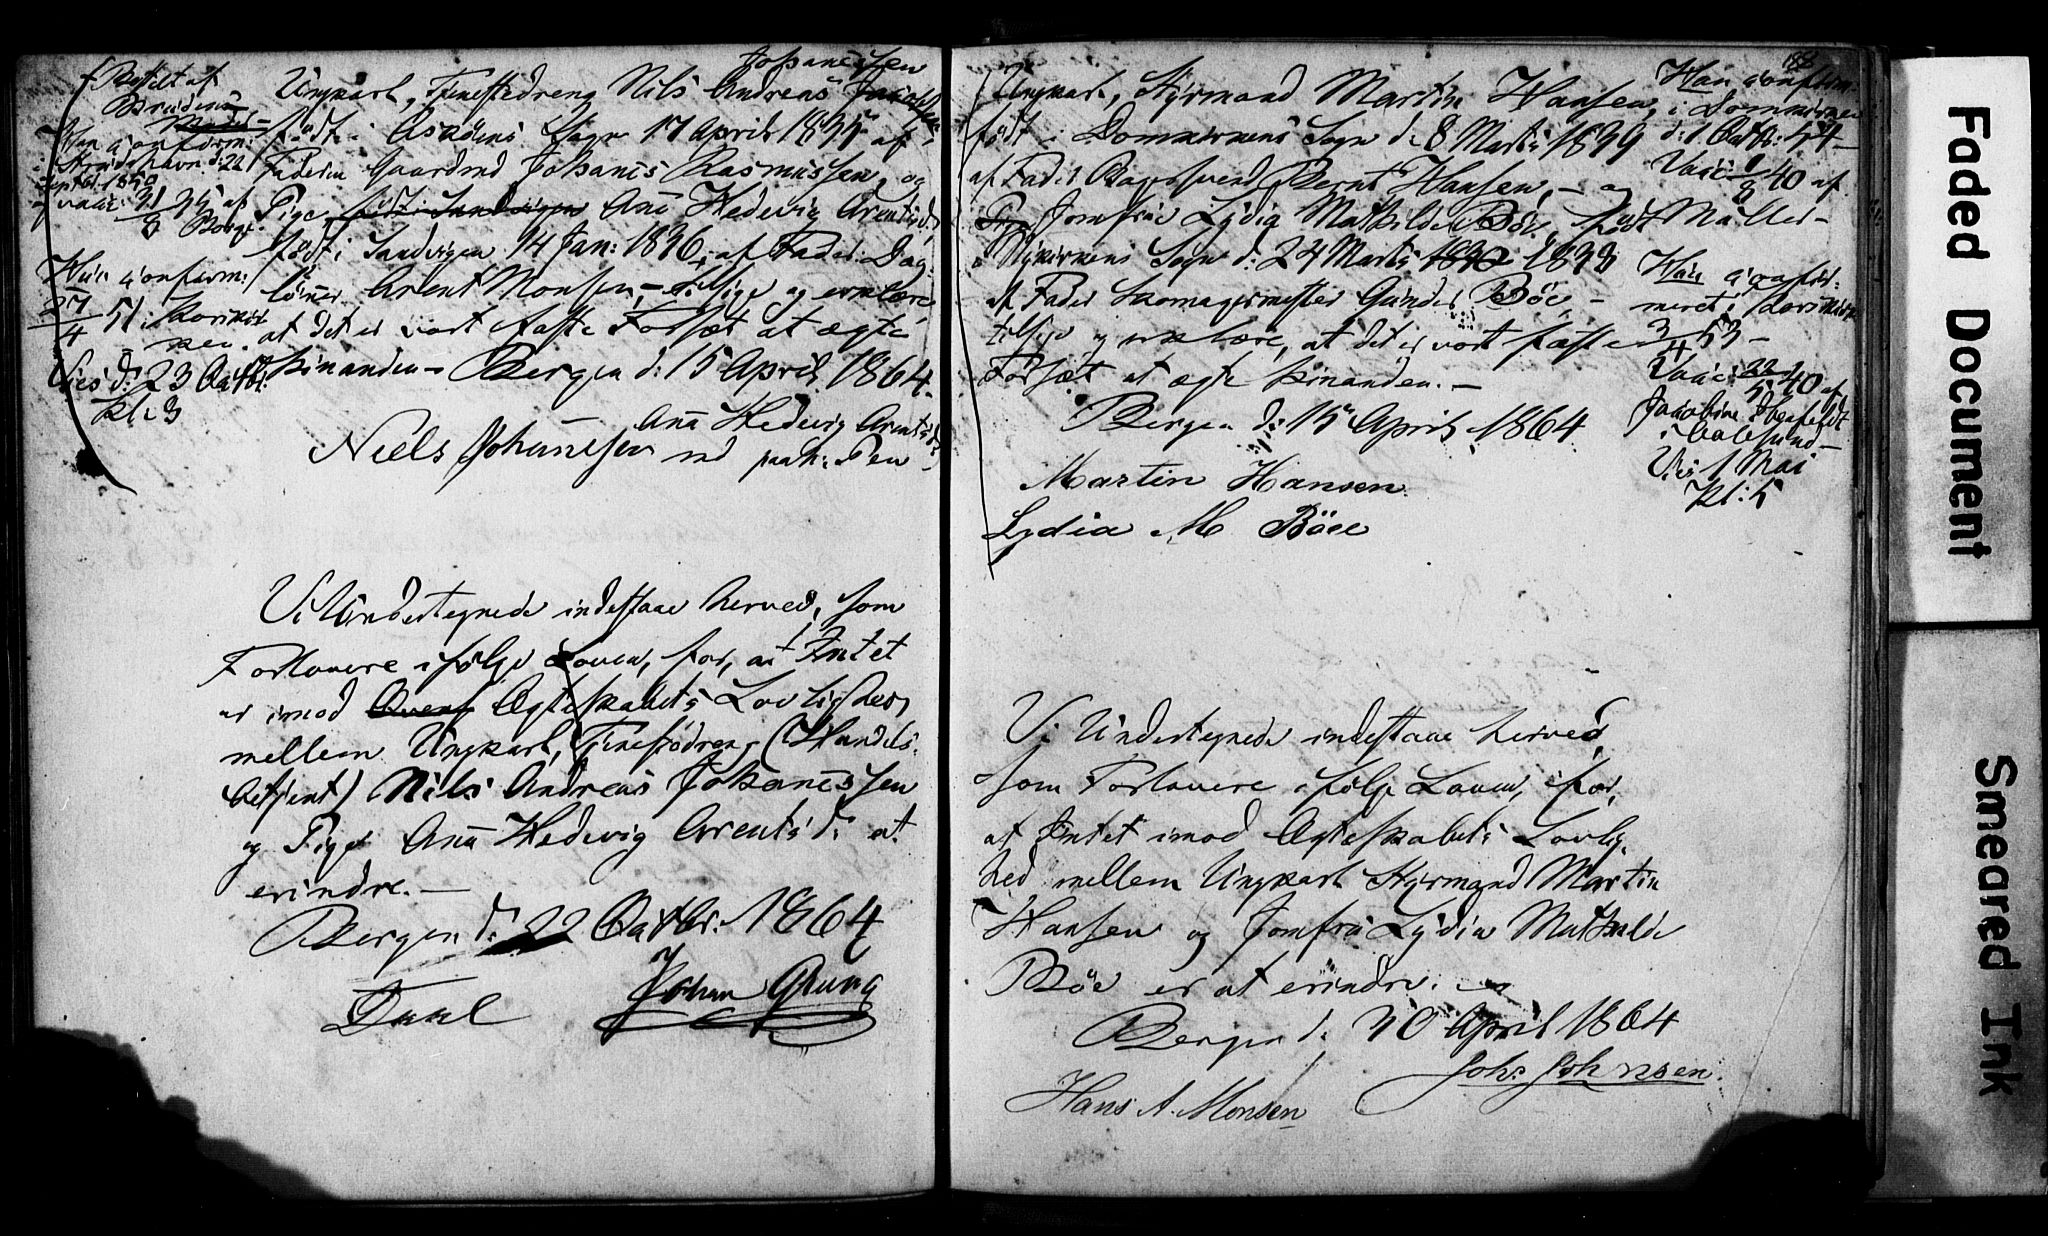 Bestilt af
Bruden
Han confirm:
d: 22
Septbr. 1850
vacc: 31/8 35 af
Borge
Hun confirm:
27/4 51 Korskir
ken
Vies d: 23 Octbr.
Kl: 3
Johanessen
Ungkarl, Tjenestedreng Nils Andreas
født i Sogn 17 April 1835 af
Faderen Gaardmd Johanes Rasmussen, og
Pige Ane Hedevig Arentsd:
født i Sandvigen 14 Jan: 1836, af Fader: Dag-
lönner Arent Monsen, tilsige og erklære
at det er vort faste Forsæt at ægte
hinanden – Bergen d: 15 April 1864.
Ane Hedevig Arentsd:
Niels Johanessen md paah: Pen
Vi Undertegnede indestaae herved, som
Forlovere ifølge Loven, for, at Intet
er imod Ægteskabets Lovlighed
mellem Ungkarl, Tjenestedreng (Handels-
betjent) Nils Andreas Johanessen
og Pige Ane Hedevig Arentsd: at
erindre. –
Bergen d: 22 Octbr. 1864
Daal Johan Grung
188
Ungkarl, Styrmand Martin Hansen,
født i Domkirkens Sogn d: 8 Marts 1839
af Fader Bagersvend Bernt Hansen, – og
Jomfrue Lydia Mathilde Böe, født
i Nykirkens Sogn d: 24 Marts 1838
af Fader Skomagermester Gunder Böe –
tilsige og erklære, at det er vort faste
Forsæt at ægte hinanden. –
Bergen d: 15 April 1864
Martin Hansen
Lydia M Böee
Han confirm.
i Domkirken
d: 1 Octb: 54 –
Vacc: 1/8 40 af
Müller –
Hun confir-
meret i Korskirk
3/4 53 –
Vacc: 22/5 40 af
Jacobine
i
Vies 1 Mai
Kl: 5
Vi Undertegnede indestaae herved,
som Forlovere ifølge Loven, for,
at Intet imod Ægteskabets Lovlig-
hed mellem Ungkarl Styrmand Martin
Hansen og Jomfru Lydia Mathilde
Böe er at erindre. –
Bergen d: 30 April 1864
Johs Johnsen.
Hans A. Monsen
Faded Document
Smeared Ink